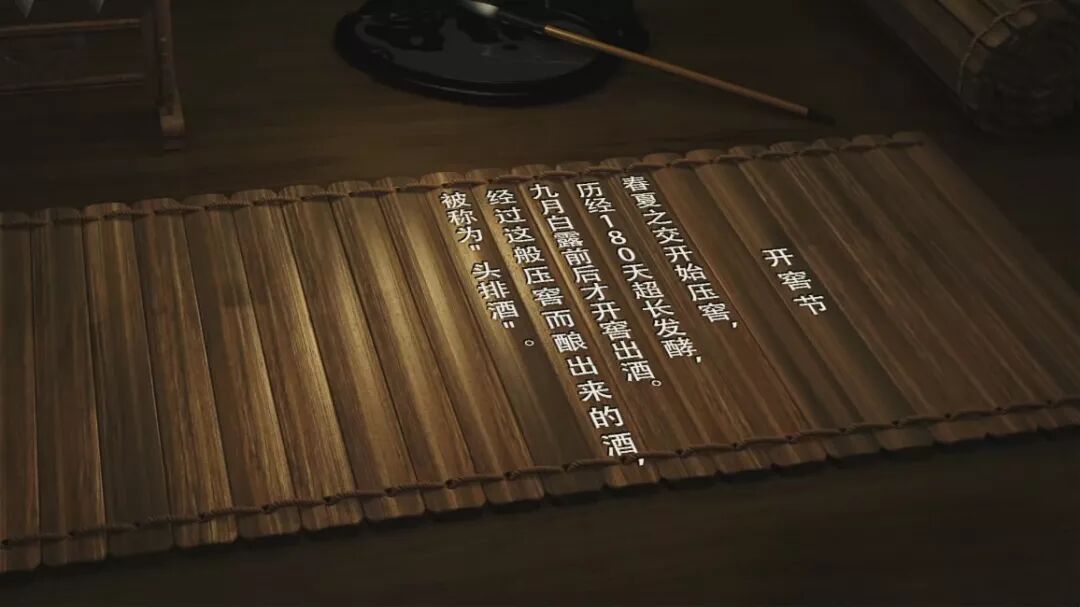 开窖节
春夏之交开始压窖,
历经180天超长发酵,
九月白露前后才开窖出酒。
经过这般压窖而酿出来的酒,
被称为"头排酒"。